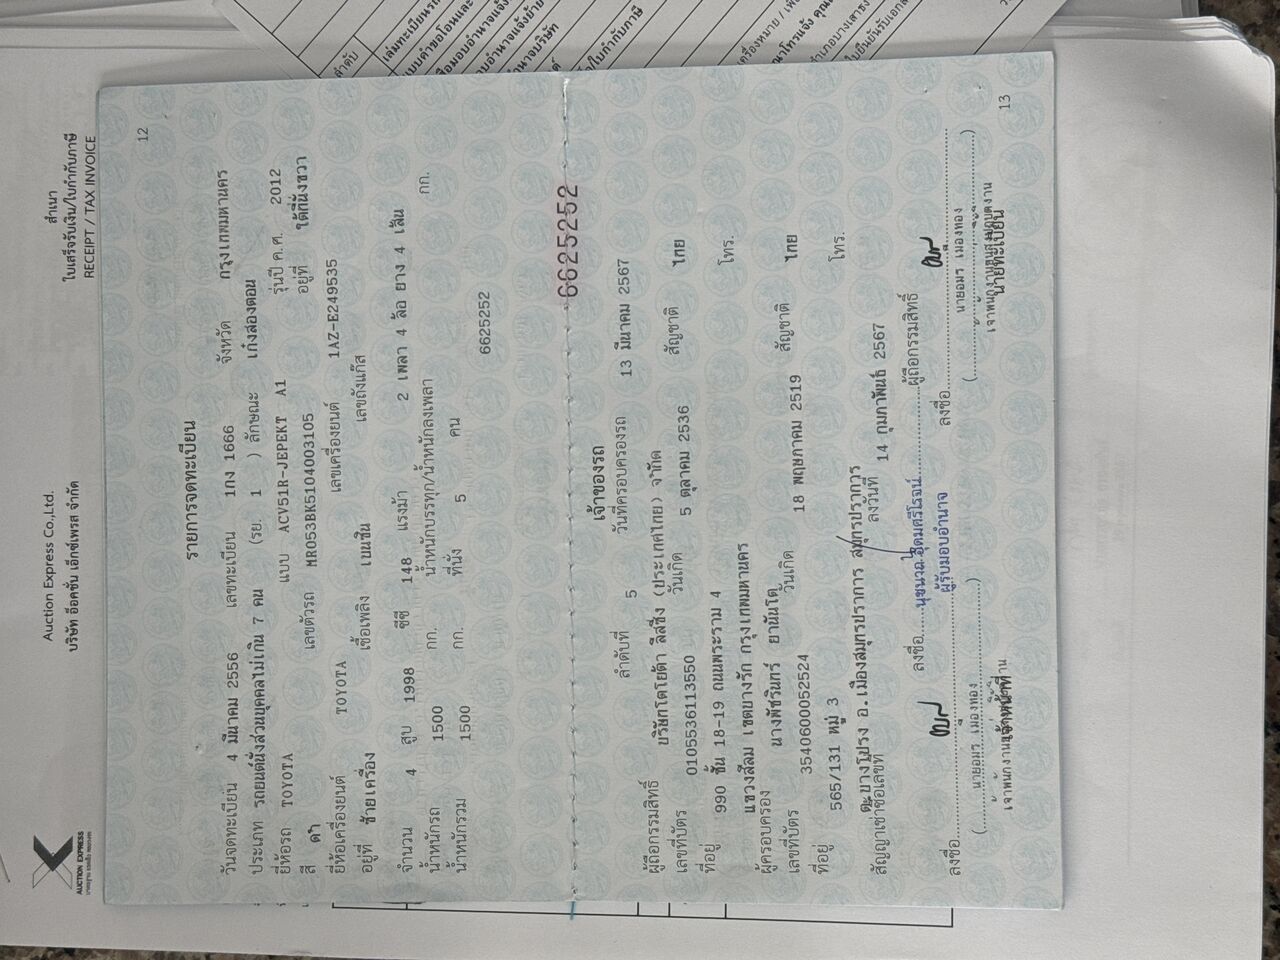 สำเนา
ใบเสร็จรับเงิน/ใบกำกับภาษี
RECEIPT / TAX INVOICE
Auction Express Co.,Ltd.
บริษัท อ๊อคชั่น เอ็กซ์เพรส จำกัด
AUCTION EXPRESS
ลำดับ
12
รายการจดทะเบียน
วันจดทะเบียน 4 มีนาคม 2556 เลขทะเบียน 1กง 1666 จังหวัด กรุงเทพมหานคร
ประเภท รถยนต์นั่งส่วนบุคคลไม่เกิน 7 คน (รย. 1 ) ลักษณะ เก๋งสองตอน
ยี่ห้อรถ TOYOTA แบบ ACV51R-JEPEKT A1 รุ่นปี ค.ศ. 2012
สี ดำ เลขตัวรถ MR053BK5104003105 อยู่ที่ ใต้ที่นั่งขวา
ยี่ห้อเครื่องยนต์ TOYOTA เลขเครื่องยนต์ 1AZ-E249535
อยู่ที่ ซ้ายเครื่อง เชื้อเพลิง เบนซิน เลขถังแก๊ส
จำนวน 4 สูบ 1998 ซีซี 148 แรงม้า 2 เพลา 4 ล้อ ยาง 4 เส้น
น้ำหนักรถ 1500 กก. น้ำหนักบรรทุก/น้ำหนักลงเพลา กก.
น้ำหนักรวม 1500 กก. ที่นั่ง 5 คน
6625252
6625252
เจ้าของรถ
ลำดับที่ 5 วันที่ครอบครองรถ 13 มีนาคม 2567
ผู้ถือกรรมสิทธิ์ บริษัทโตโยต้า ลีสซิ่ง (ประเทศไทย) จำกัด
เลขที่บัตร 0105536113550 วันเกิด 5 ตุลาคม 2536 สัญชาติ ไทย
ที่อยู่ 990 ชั้น 18-19 ถนนพระราม 4 โทร.
แขวงสีลม เขตบางรัก กรุงเทพมหานคร
ผู้ครอบครอง นางพัชรินทร์ ยานันโต
เลขที่บัตร 3540600052524 วันเกิด 18 พฤษภาคม 2519 สัญชาติ ไทย
ที่อยู่ 565/131 หมู่ 3 โทร.
ต.บางโปรง อ.เมืองสมุทรปราการ สมุทรปราการ
สัญญาเช่าซื้อเลขที่ ลงวันที่ 14 กุมภาพันธ์ 2567
ลงชื่อ ผู้ถือกรรมสิทธิ์
ผู้รับมอบอำนาจ
ลงชื่อ ลงชื่อ
( นายอมร เมืองทอง ) ( นายอมร เมืองทอง )
เจ้าหน้าที่ นายทะเบียน
13